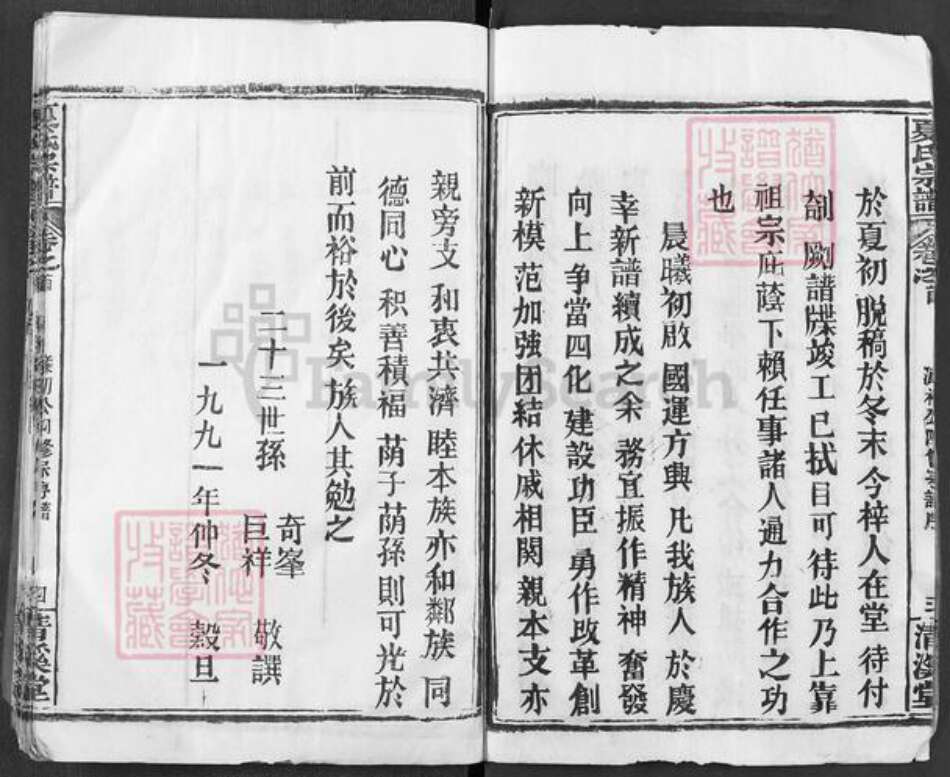 夏氏宗譜
於夏初脫稿於冬末今梓人在堂待付
劊劂譜牒竣工已拭目可待此乃上靠
祖宗庇蔭下賴任事諸人通力合作之功
也
晨曦初啟國運方興凡我族人於慶
幸新譜續成之余務宜振作精神奮發
向上争當四化建設功臣勇作改革創
新模范加強团結休戚相関親本支亦
三
清
堂
親旁支和衷共濟睦本族亦和鄰族同
德同心积善積福荫子荫孫則可光於
前而裕於後矣族人其勉之
二十三世孫
奇峯
巨祥
敬譔
一九九一年仲冬
穀旦
四
堂
FamilySearch
譜學會
收藏
譜學會
收藏